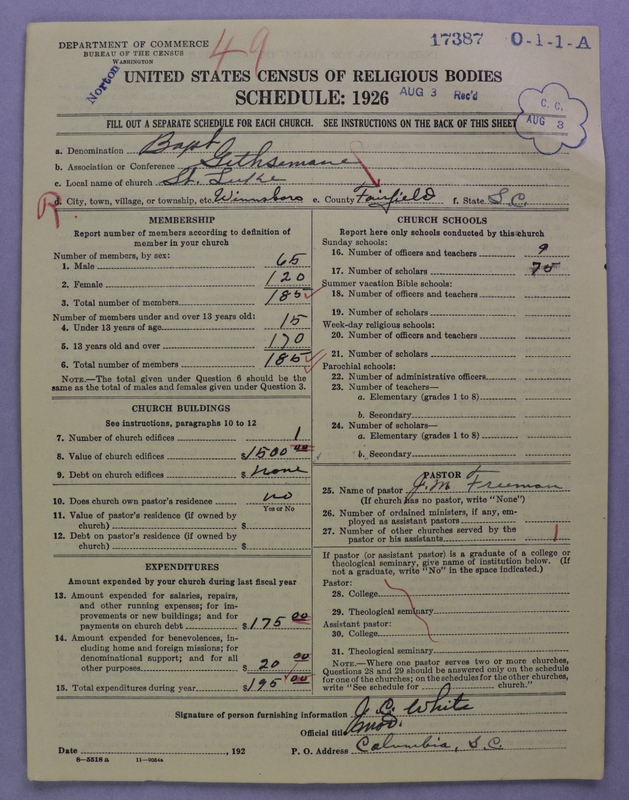 DEPARTMENT OF COMMERCE
BUREAU OF THE CENSUS
WASHINGTON
49
17387 O-1-1-A
Norton
UNITED STATES CENSUS OF RELIGIOUS BODIES
SCHEDULE: 1926
AUG 3 Rec'd
C. C.
AUG 3
FILL OUT A SEPARATE SCHEDULE FOR EACH CHURCH. SEE INSTRUCTIONS ON THE BACK OF THIS SHEET
a. Denomination Bapt
b. Association or Conference Gethsemane
c. Local name of church St. Luke
d. City, town, village, or township, etc. Winnsboro e. County Fairfield f. State S.C.
MEMBERSHIP
Report number of members according to definition of
member in your church
Number of members, by sex:
1. Male 65
2. Female 120
3. Total number of members 185
Number of members under and over 13 years old:
4. Under 13 years of age 15
5. 13 years old and over 170
6. Total number of members 185
NOTE.—The total given under Question 6 should be the
same as the total of males and females given under Question 3.
CHURCH BUILDINGS
See instructions, paragraphs 10 to 12
7. Number of church edifices 1
8. Value of church edifices $1500 00
9. Debt on church edifices $ none
10. Does church own pastor's residence no
Yes or No
11. Value of pastor's residence (if owned by
church) $
12. Debt on pastor's residence (if owned by
church) $
EXPENDITURES
Amount expended by your church during last fiscal year
13. Amount expended for salaries, repairs,
and other running expenses; for im-
provements or new buildings; and for
payments on church debt $175 00
14. Amount expended for benevolences, in-
cluding home and foreign missions; for
denominational support; and for all
other purposes $ 20 00
15. Total expenditures during year $195 00
CHURCH SCHOOLS
Report here only schools conducted by this church
Sunday schools:
16. Number of officers and teachers 9
17. Number of scholars 75
Summer vacation Bible schools:
18. Number of officers and teachers
19. Number of scholars
Week-day religious schools:
20. Number of officers and teachers
21. Number of scholars
Parochial schools:
22. Number of administrative officers
23. Number of teachers—
a. Elementary (grades 1 to 8)
b. Secondary
24. Number of scholars—
a. Elementary (grades 1 to 8)
b. Secondary
PASTOR
25. Name of pastor J. M Freeman
(If church has no pastor, write "None")
26. Number of ordained ministers, if any, em-
ployed as assistant pastors
27. Number of other churches served by the
pastor or his assistants 1
If pastor (or assistant pastor) is a graduate of a college or
theological seminary, give name of institution below. (If
not a graduate, write "No" in the space indicated.)
Pastor:
28. College
29. Theological seminary
Assistant pastor:
30. College
31. Theological seminary
NOTE.—Where one pastor serves two or more churches,
Questions 28 and 29 should be answered only on the schedule
for one of the churches; on the schedules for the other churches,
write "See schedule for church."
Signature of person furnishing information J. C. White
Official title Mod.
Date , 192 P. O. Address Columbia, S.C.
8—5518 a 11—9064a